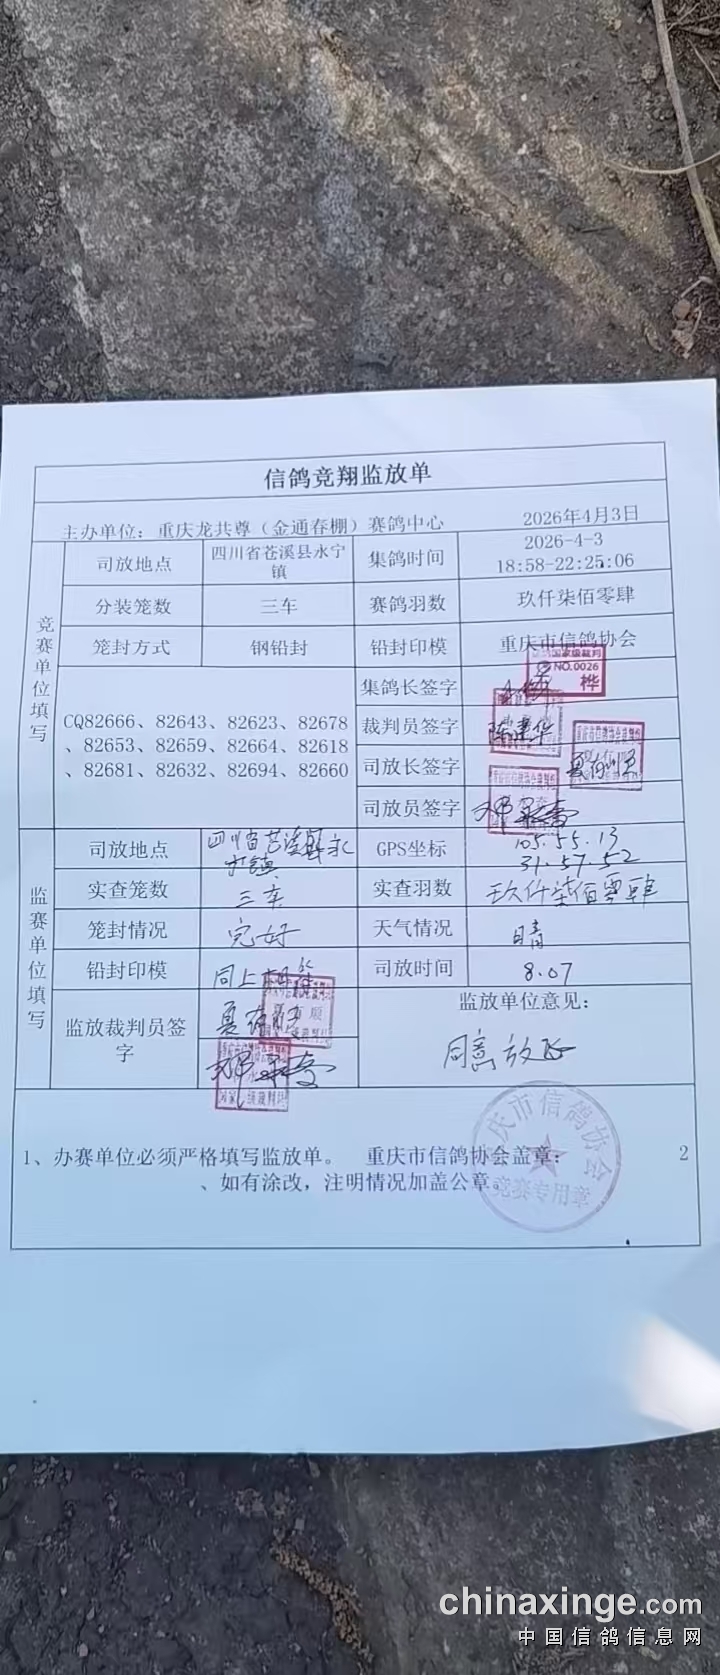 信鸽竞翔监放单
主办单位：重庆龙共尊（金通春棚）赛鸽中心 2026年4月3日
竞赛单位填写
司放地点 四川省苍溪县永宁镇 集鸽时间 2026-4-3 18:58-22:25:06
分装笼数 三车 赛鸽羽数 玖仟柒佰零肆
笼封方式 钢铅封 铅封印模 重庆市信鸽协会
CQ82666、82643、82623、82678
、82653、82659、82664、82618
、82681、82632、82694、82660
集鸽长签字
国家级裁判
NO.0026
桦
裁判员签字 陈建华
司放长签字
司放员签字
监赛单位填写
司放地点 四川省苍溪县永宁镇 GPS坐标 105.55.13 31.57.52
实查笼数 三车 实查羽数 玖仟柒佰零肆
笼封情况 完好 天气情况 晴
铅封印模 同上 司放时间 8.07
监放裁判员签字
监放单位意见：
同意放飞
1、办赛单位必须严格填写监放单。 重庆市信鸽协会盖章： 2
、如有涂改，注明情况加盖公章。
重庆市信鸽协会
竞赛专用章
chinaxinge.com
中国信鸽信息网